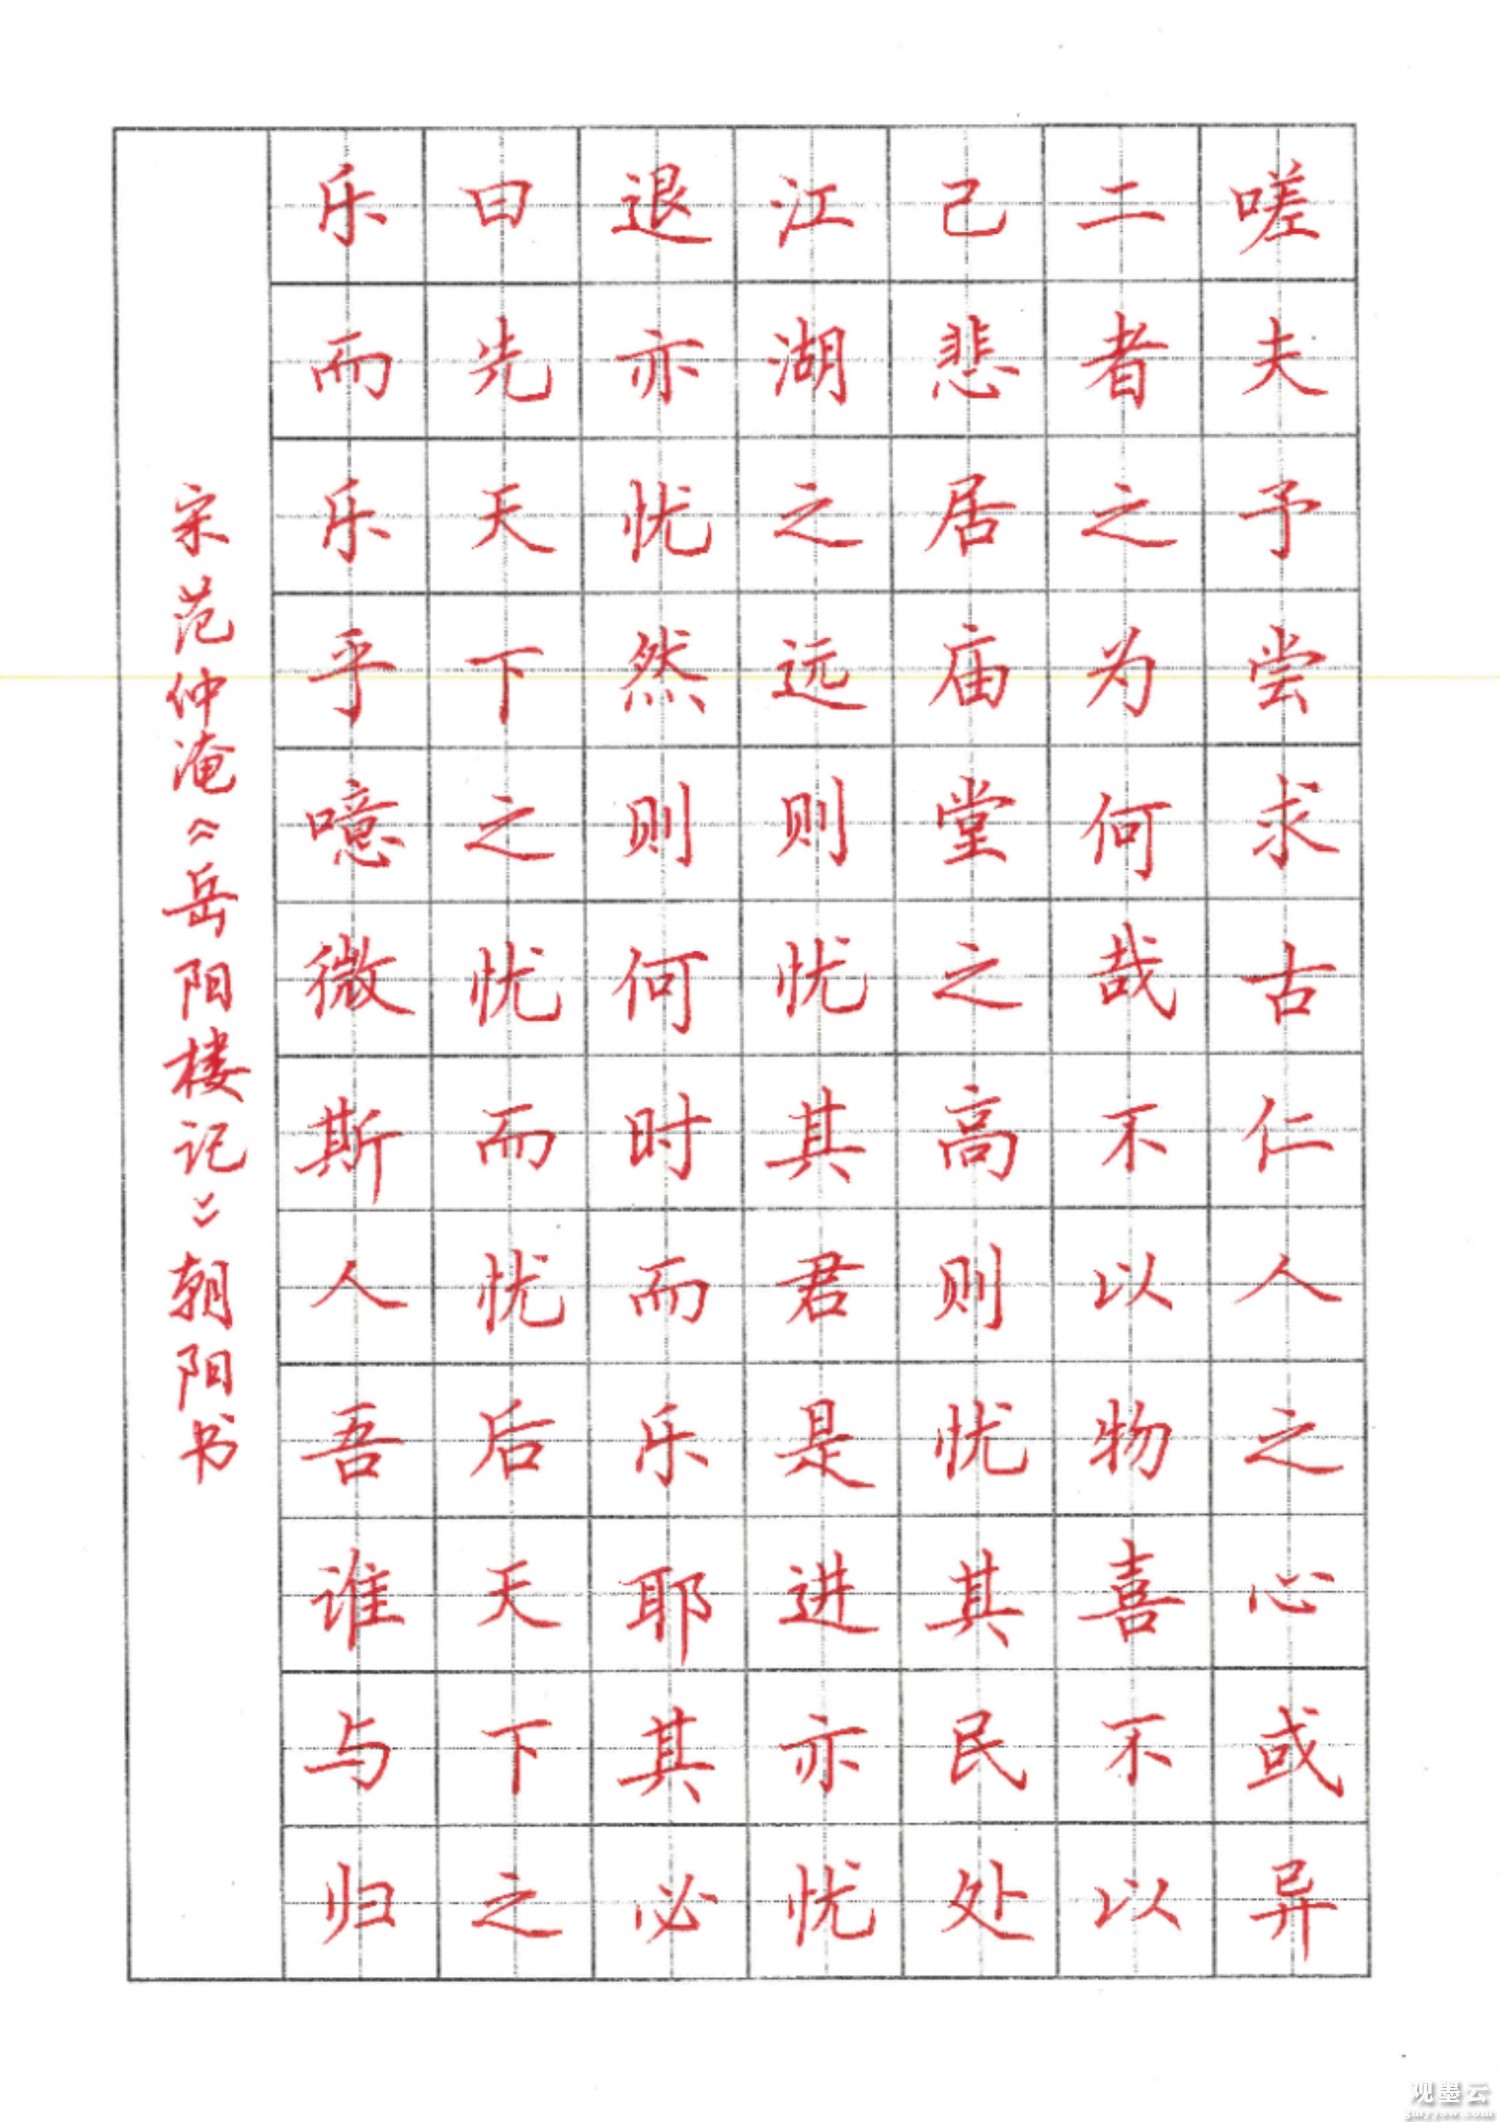 嗟夫予尝求古仁人之心或异
二者之为何哉不以物喜不以
己悲居庙堂之高则忧其民处
江湖之远则忧其君是进亦忧
退亦忧然则何时而乐耶其必
曰先天下之忧而忧后天下之
乐而乐乎噫微斯人吾谁与归
宋范仲淹《岳阳楼记》朝阳书
观墨云
gmyyun.com